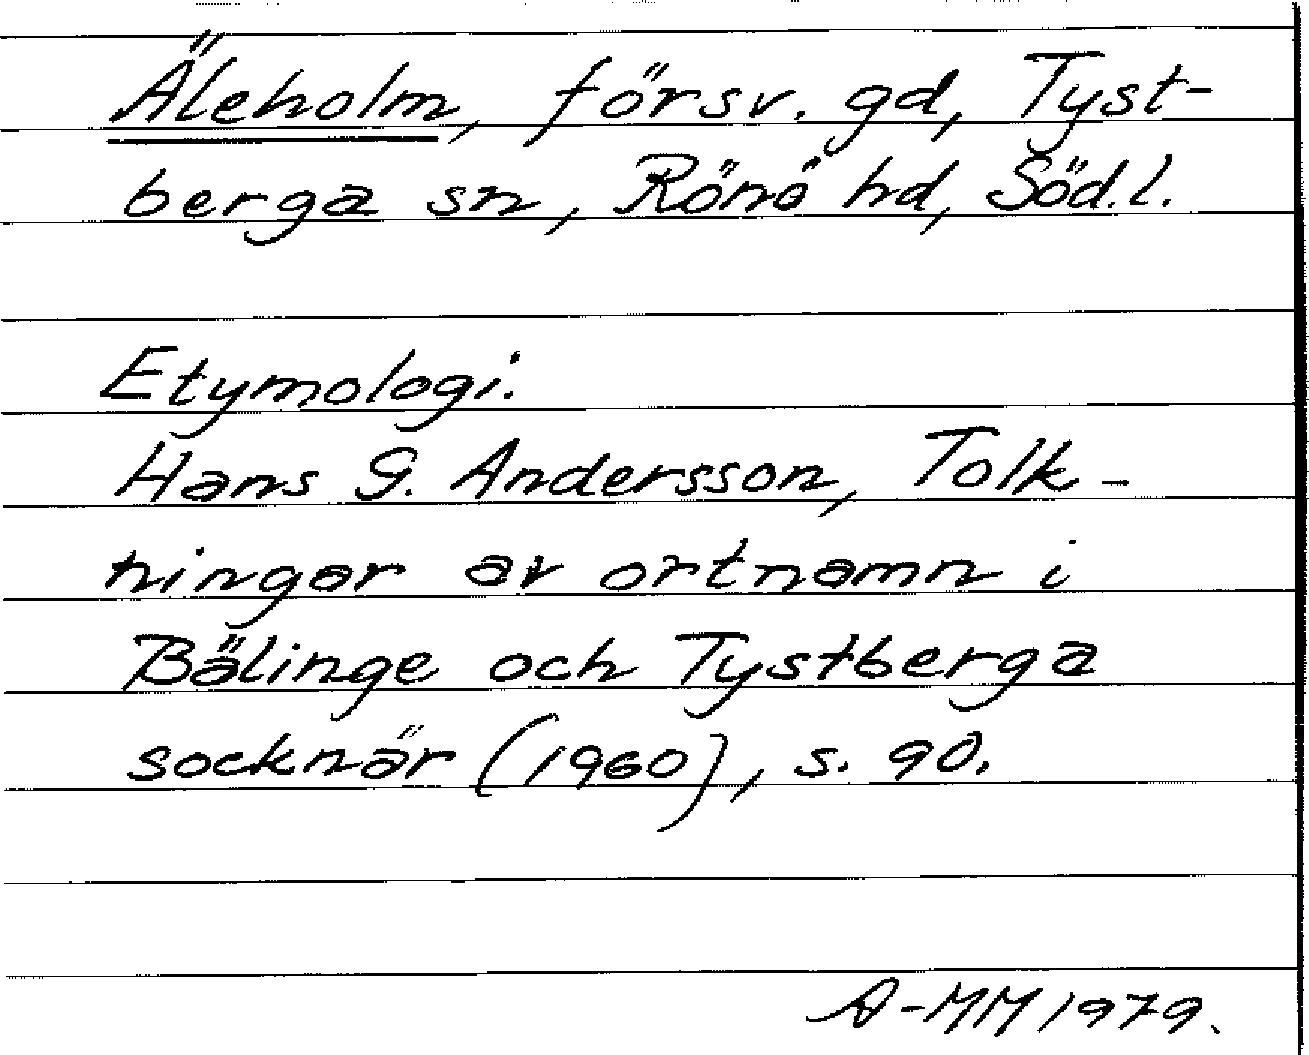 Äleholm, försv. gd, Tyst-
berga sn, Rönö hd, Söd.l.
Etymologi:
Hans G. Andersson, Tolk-
ningar av ortnamn i
Bälinge och Tystberga
socknär (1960), s. 90.
A-MM 1979.